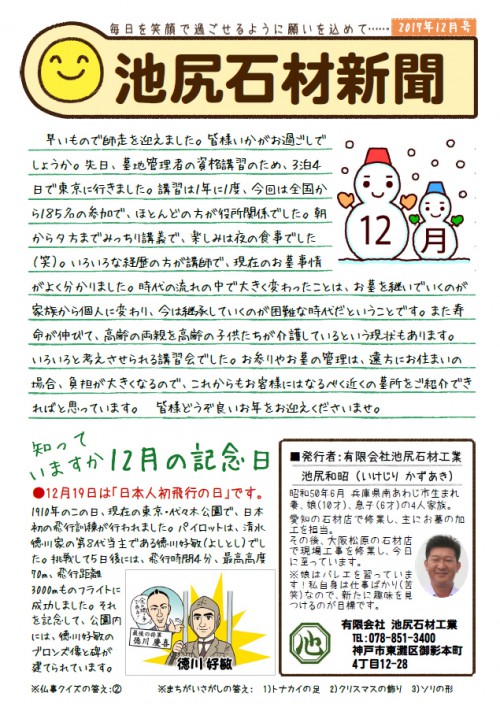 毎日を笑顔で過ごせるように願いを込めて……
2019年12月号
池尻石材新聞
早いもので師走を迎えました。皆様いかがお過ごしで
しょうか。先日、墓地管理者の資格講習のため、3泊4
日で東京に行きました。講習は1年に1度、今回は全国か
ら185名の参加で、ほとんどの方が役所関係でした。朝
から夕方までみっちり講義で、楽しみは夜の食事でした
(笑)。いろいろな経歴の方が講師で、現在のお墓事情
がよく分かりました。時代の流れの中で大きく変わったことは、お墓を継いでいくのが
家族から個人に変わり、今は継承していくのが困難な時代だということです。また寿
命が伸びて、高齢の両親を高齢の子供たちが介護しているという現状もあります。
いろいろと考えさせられる講習会でした。お参りやお墓の管理は、遠方にお住まいの
場合、負担が大きくなるので、これからもお客様にはなるべく近くの墓所をご紹介でき
ればと思っています。 皆様どうぞ良いお年をお迎えくださいませ。
12
月
知って
いますか 12月の記念日
●12月19日は「日本人初飛行の日」です。
1910年のこの日、現在の東京・代々木公園で、日本
初の飛行訓練が行われました。パイロットは、清水
徳川家の第8代当主である徳川好敏(よしとし)でし
た。挑戦して5日後には、飛行時間4分、最高高度
70m、飛行距離
3000mものフライトに
成功しました。それ
を記念して、公園内
には、徳川好敏の
ブロンズ像と碑が
建てられています。
最後の将軍
徳川 慶喜
徳川 好敏
■発行者:有限会社池尻石材工業
池尻和昭 (いけじり かずあき)
昭和50年6月 兵庫県南あわじ市生まれ
妻、娘(10才)、息子(6才)の4人家族。
愛知の石材店で修業し、主にお墓の加
工を担当。
その後、大阪松原の石材店
で現場工事を修業し、今日
に至っています。
※娘はバレエを習っていま
す!私自身は仕事ばかり(苦
笑)なので、新たに趣味を見
つけるのが目標です。
池
有限会社 池尻石材工業
TEL:078-851-3400
神戸市東灘区御影本町
4丁目12-28
※仏事クイズの答え:② ※まちがいさがしの答え: 1)トナカイの足 2)クリスマスの飾り 3)ソリの形